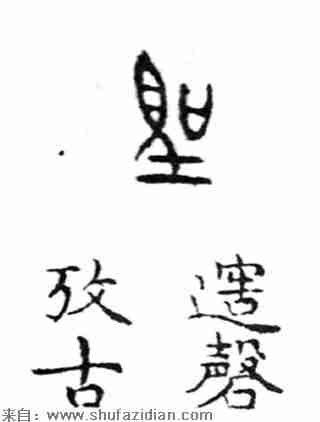 聖
磬
攷古
来自：www.shufazidian.com